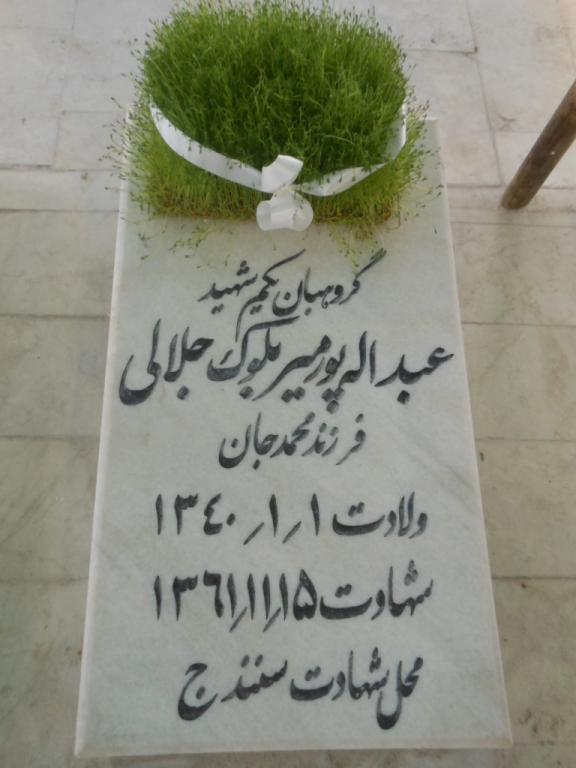 گروهبان یکم شهید
عبداله پورمیر بلوک جلالی
فرزند محمد جان
ولادت ۱ ر ۱ ر ۱۳۴۰
شهادت ۱۵ ر ۱۱ ر ۱۳۶۱
محل شهادت سنندج